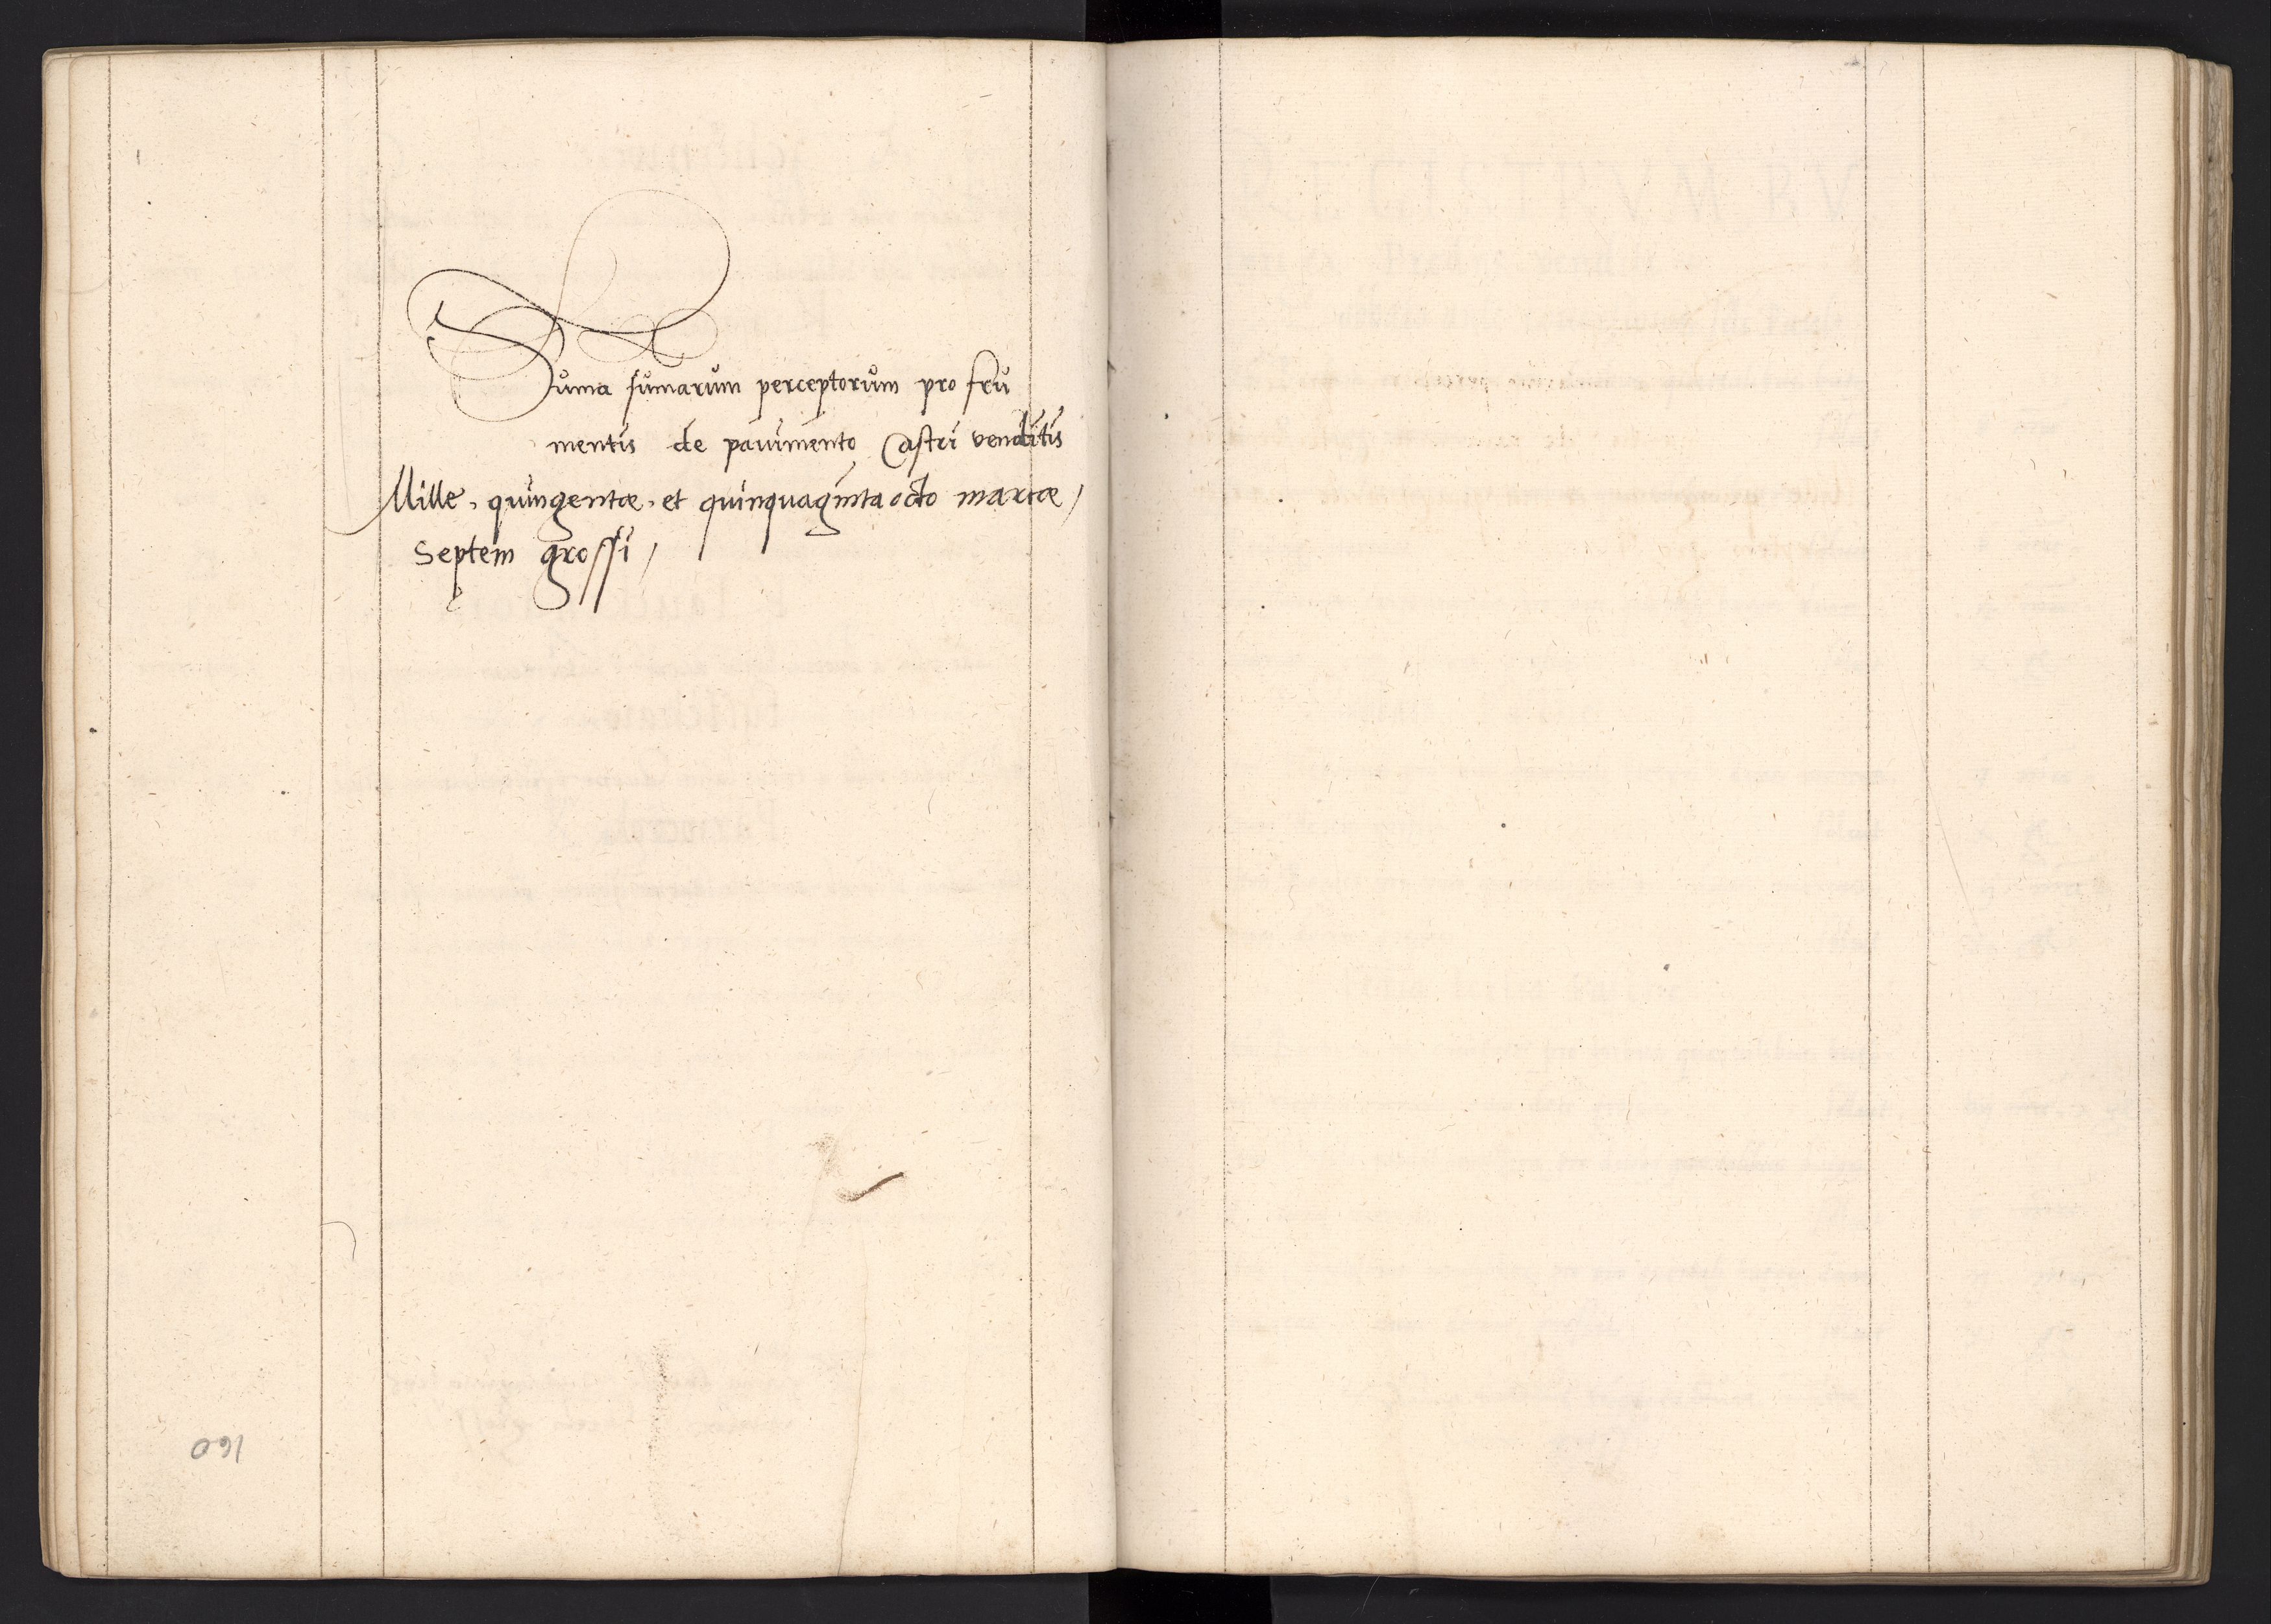 Suma sumarum perceptorum pro fru
mentis de pavimento Castri venditis
Mille, quingentæ, et quinquaginta octo marcæ,
Septem grossi,
160